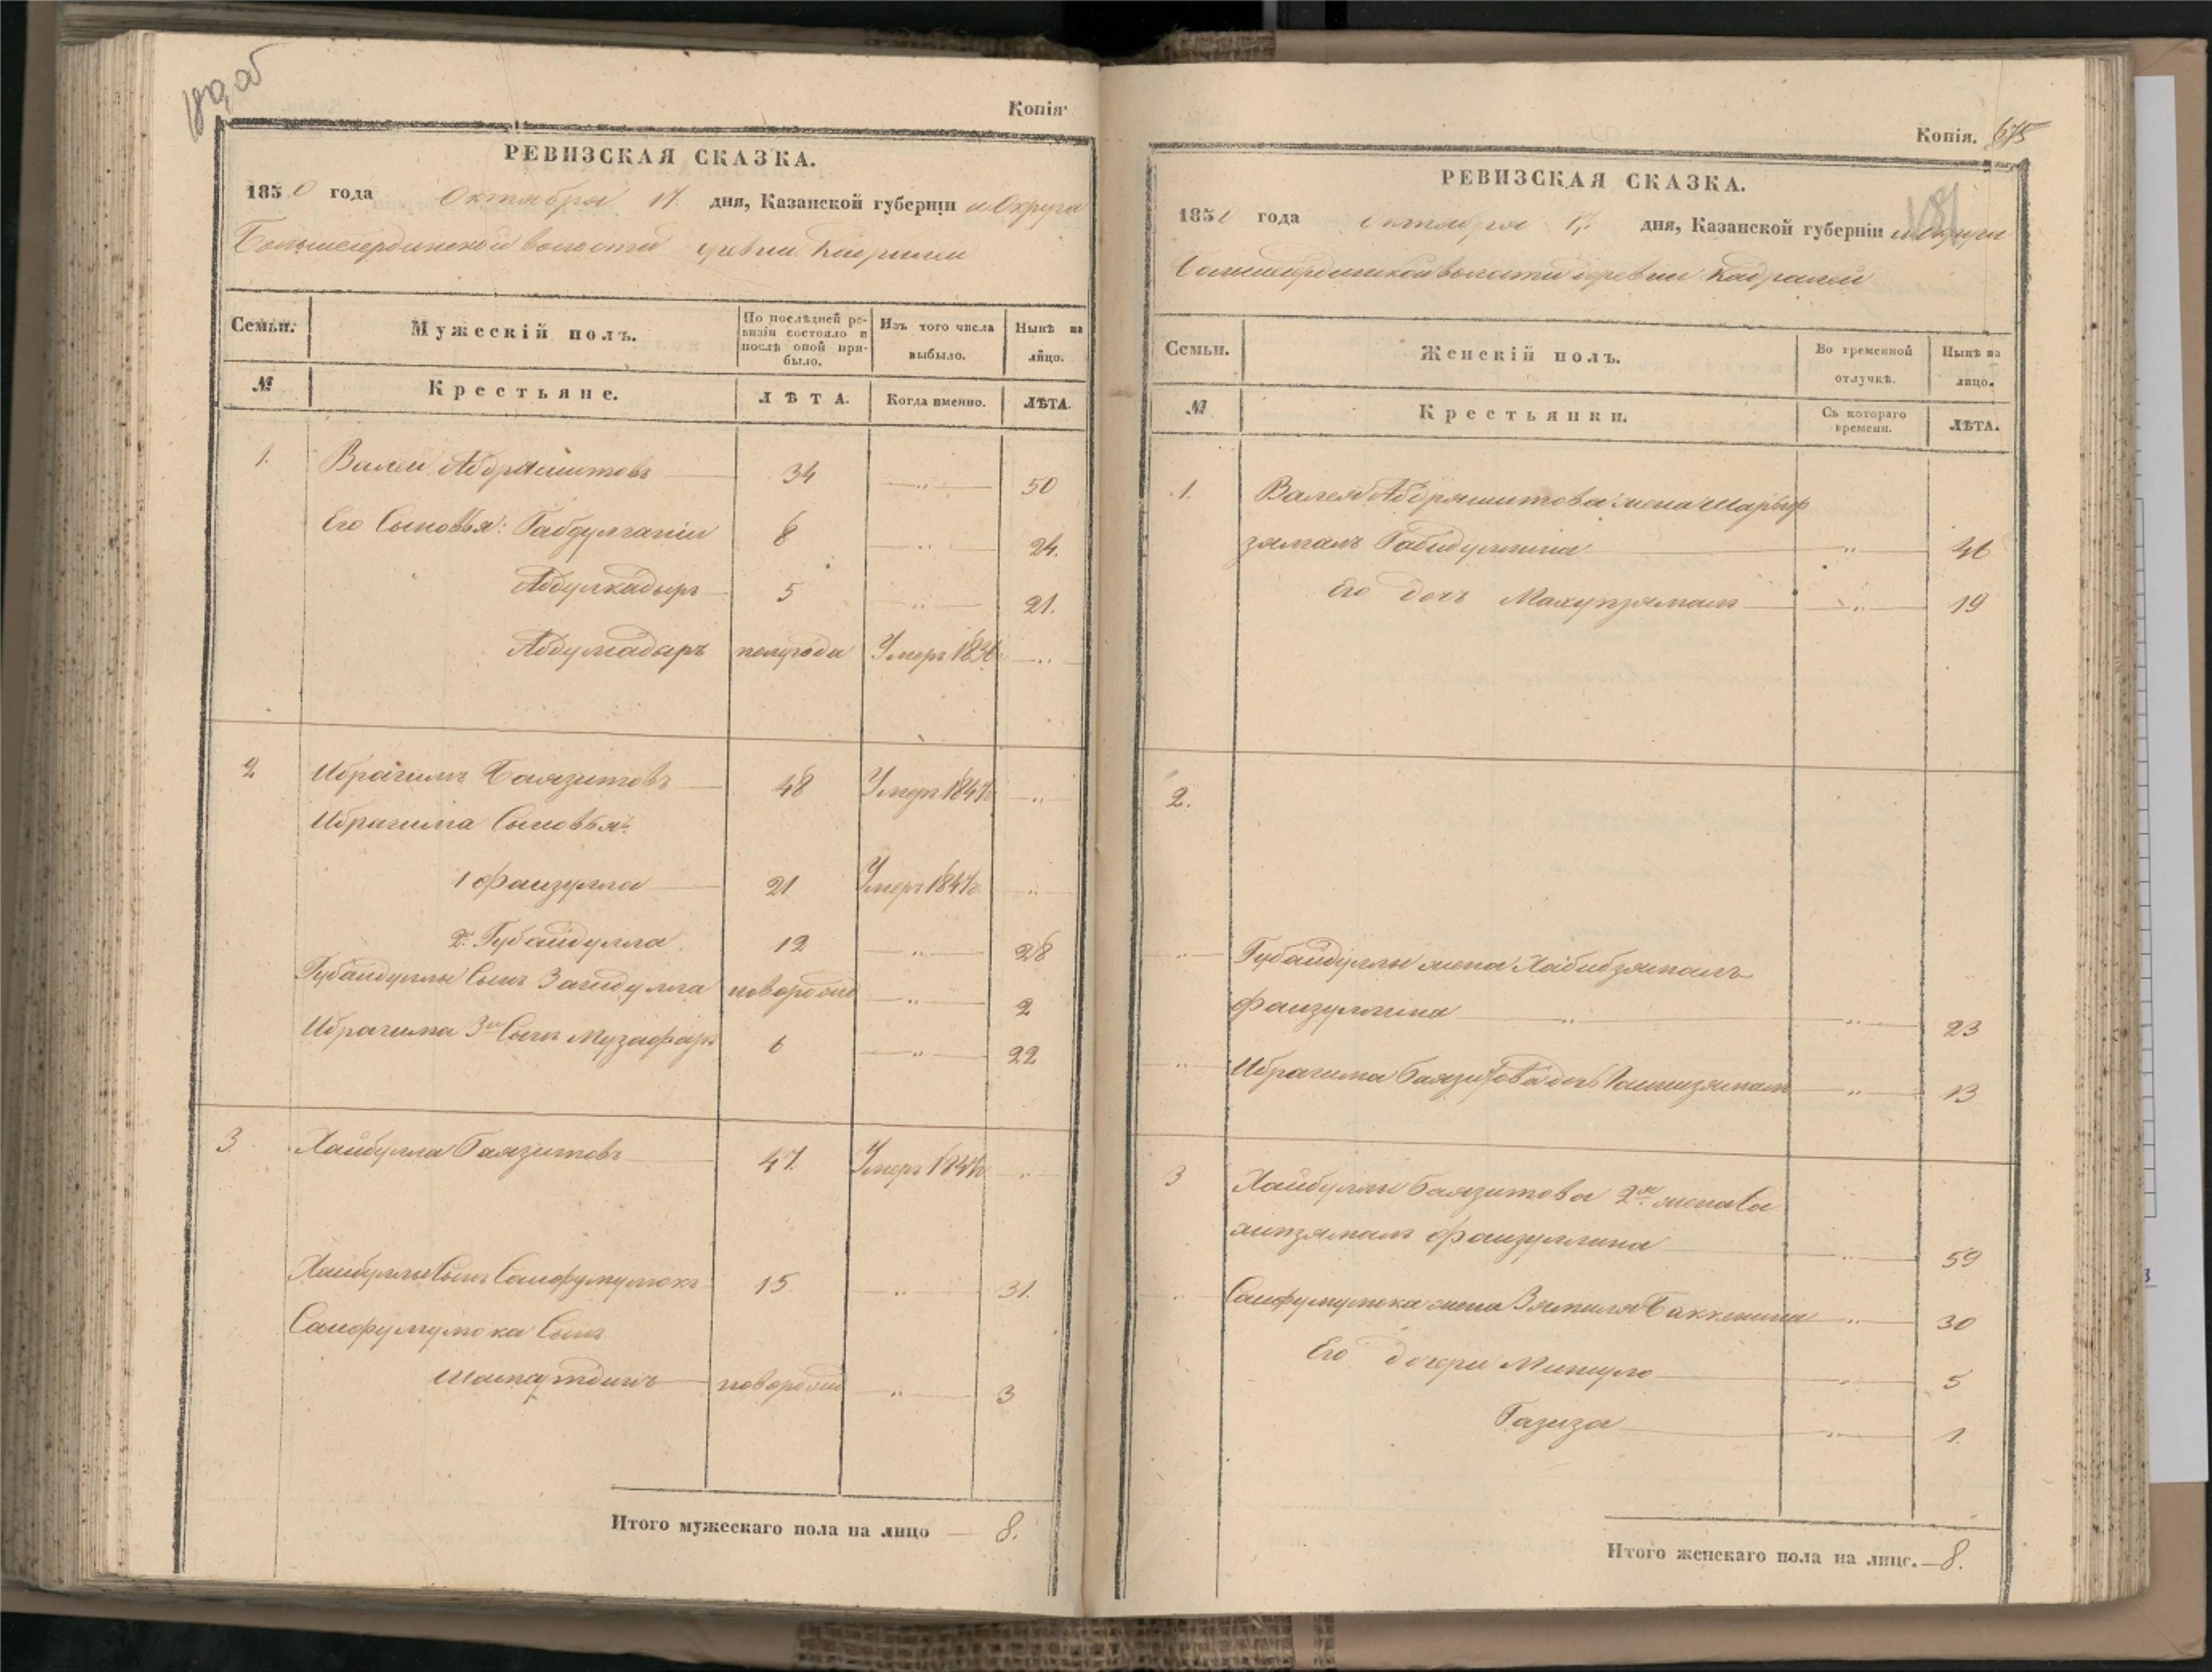 180, об
Копія
РЕВИЗСКАЯ СКАЗКА.
1850 года Октября 17. дня, Казанской губерніи и Округа
Большесердинской волости деревни Кадрилеи
Семьи. Мужескій полъ. По послѣдней ревизіи состояло и послѣ оной прибыло. Изъ того числа выбыло. Нынѣ на лицо.
№ Крестьяне. ЛѢТА. Когда именно. ЛѢТА.
1. Валей Абдряшитовъ 34 „ 50
Его Сыновья: Габдулганіи 8 „ 24.
Абдулкадыръ 5 „ 21.
Абдулнадыръ полугода Умеръ 1836 „
2 Ибрагимъ Баязитовъ 48 Умеръ 1847г „
Ибрагима Сыновья:
1 Фаизулла 21 Умеръ 1847г. „
2й Губайдулла 12 „ 28
Губайдуллы Сынъ Загидулла новорожд „ 2
Ибрагима 3й Сынъ Музафаръ 6 „ 22
3. Хайбулла Баязитовъ 47. Умеръ 1847г „
Хайбуллы Сынъ Саифулмулюкъ 15 „ 31.
Саифулмулюка Сынъ
Шамаутдинъ новорожд „ 3
Итого мужескаго пола на лицо 8.
Копія. 675
181
РЕВИЗСКАЯ СКАЗКА.
1850 года Октября 17. дня, Казанской губерніи и Округа
Большесердинской волости деревни Кадралеи
Семьи. Женскій полъ. Во временной отлучкѣ. Нынѣ на лицо.
№ Крестьянки. Съ котораго времени. ЛѢТА.
1. Валея Абдряшитова жена Шарыф
зямалъ Габидуллина „ 46
Его дочь Махупзямалъ „ 19
2.
„ Губайдуллы жена Хабибзямалъ
Фаизуллина „ „ 23
„ Ибрагима Баязитова дочь Гашизямалъ „ 13
3 Хайбуллы Баязитова 2я жена Са
хипзямалъ Фаизуллина „ 59
„ Саифулмулюка жена Зямиля Баккенина „ 30
Его дочери Минзуло „ 5
Газиза „ 1.
Итого женскаго пола на лицо. 8.